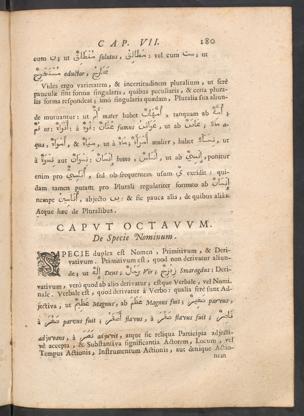 CAP. VII. 180
cum ن; ut مُنْطَلِقٌ solutus, مَطَالِقُ; vel cum ت; ut
مُسْتَخْرِجٌ eductor, مَخَارِجُ.
Vides ergo varietatem, & incertitudinem pluralium, ut ferè
paucule sint forma singularis, quibus peculiaris, & certa plura-
lis forma respondeat; imò singularia quædam, Pluralia sua aliun-
de mutuantur: ut أُمٌّ mater habet أُمَّهَاتٌ, tanquam ab أُمَّهَةٌ;
ut فَمٌ: أَفْوَاهٌ à فُوهٌ: عُثَانٌ fumus عَوَاثِنُ, ut ab
aqua, أَمْوَاهٌ, & مِيَاهٌ, ut à مَاهٌ; اِمْرَأَةٌ mulier; habet نِسَاءٌ, ut
à نِسْوَةٌ aut نِسْوَانٌ: إِنْسَانٌ homo, أُنَاسٌ, ut ab إِنْسِيٌّ, ponitur
enim pro أَنَاسِيُّ, sed ob sequentem usum ي excidit: qui-
dam tamen putant pro Plurali regulariter formato ab إِنْسَانٌ
nempe أَنَاسِينُ, abjecto ن, & sic pauca alia, de quibus aliàs.
Atque hæc de Pluralibus.
CAPUT OCTAVUM.
De Specie Nominum.
SPECIE duplex est Nomen, Primitivum, & Deri-
vativum. Primitivum est, quod non derivatur aliun-
de; ut إِلَهٌ Deus, رَجُلٌ Vir; زُمُرُّدٌ Smaragdus: Deri-
vativum, verò quod ab alio derivatur; estque Verbale, vel Nomi-
nale. Verbale est, quod derivatur à Verbo: qualia ferè sunt Ad-
jectiva, ut عَظِيمٌ Magnus, ab عَظُمَ Magnus fuit; صَغِيرٌ parvus,
à صَغُرَ parvus fuit; أَصْفَرُ flavus, à صَفِرَ flavus fuit; نَاصِرٌ
adjuvans, à نَصَرَ adjuvit, atque sic reliqua Participia adjecti-
vè accepta, & Substantiva significantia Actorem, Locum, vel
Tempus Actionis, Instrumentum Actionis, aut denique Actio-
nem